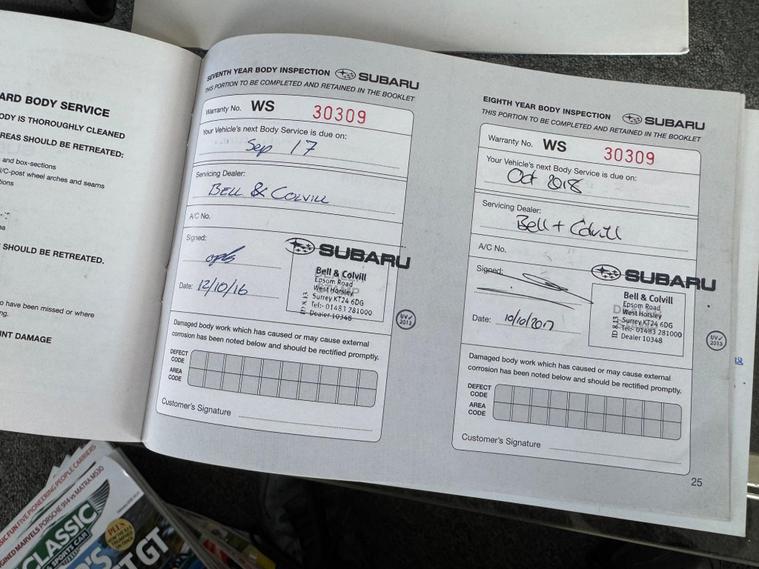 ARD BODY SERVICE
ODY IS THOROUGHLY CLEANED
REAS SHOULD BE RETREATED:
and box-sections
/C-post wheel arches and seams
tions
SHOULD BE RETREATED.
o have been missed or where
ng.
INT DAMAGE
SEVENTH YEAR BODY INSPECTION SUBARU
THIS PORTION TO BE COMPLETED AND RETAINED IN THE BOOKLET
Warranty No. WS 30309
Your Vehicle's next Body Service is due on:
Sep 17
Servicing Dealer:
BELL & COLVILL
A/C No.
Signed:
SUBARU
Bell & Colvill
Epsom Road
West Horsley
Surrey KT24 6DG
Tel: 01483 281000
Dealer 10348
Date: 12/10/16
UV✓
2013
Damaged body work which has caused or may cause external
corrosion has been noted below and should be rectified promptly.
DEFECT
CODE
AREA
CODE
Customer's Signature
EIGHTH YEAR BODY INSPECTION SUBARU
THIS PORTION TO BE COMPLETED AND RETAINED IN THE BOOKLET
Warranty No. WS 30309
Your Vehicle's next Body Service is due on:
Oct 2018
Servicing Dealer:
Bell + Colvill
A/C No.
Signed:
SUBARU
Bell & Colvill
Epsom Road
West Horsley
Surrey KT24 6DG
Tel: 01483 281000
Dealer 10348
Date: 10/10/2017
UV✓
2013
Damaged body work which has caused or may cause external
corrosion has been noted below and should be rectified promptly.
DEFECT
CODE
AREA
CODE
Customer's Signature
25
CLASSIC
& SPORTS CAR
PLUS
T GT
PORSCHE 914 vs MATRA M530